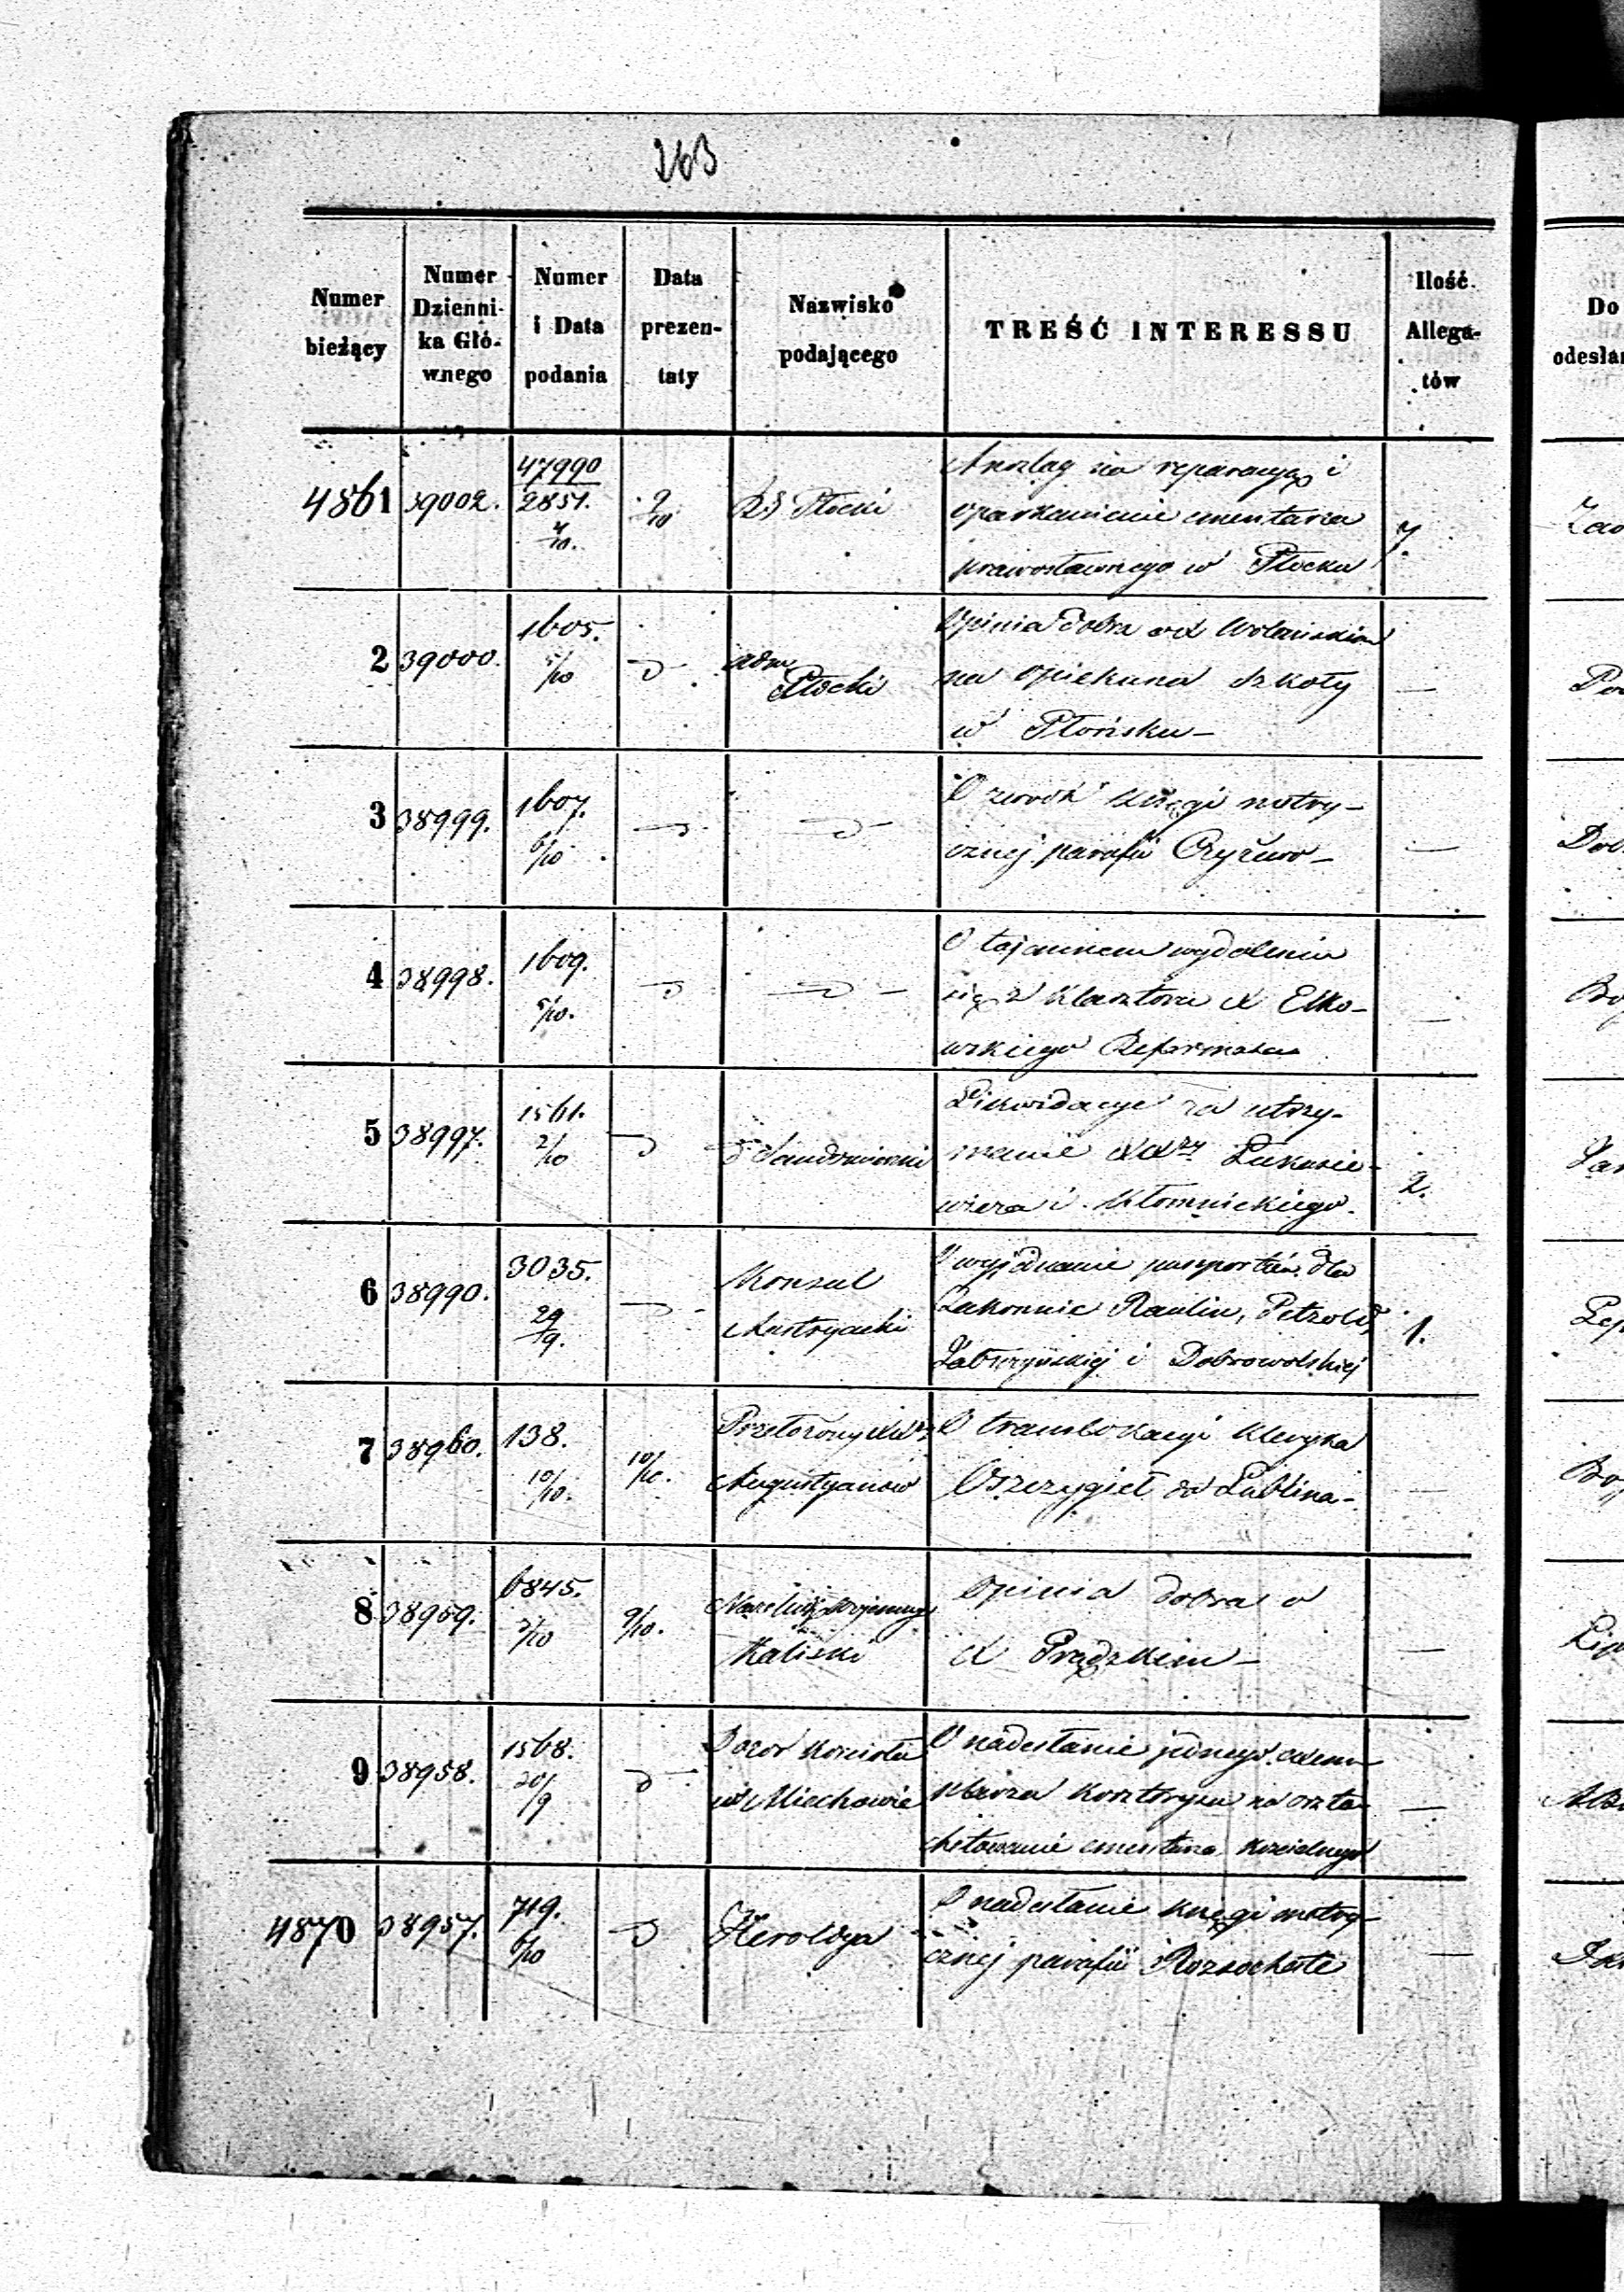 263
Numer bieżący
Numer Dzienni- ka Głó- wnego
Numer i Data podania
Data prezen- taty
Nazwisko podającego
TREŚĆ INTERESSU
Ilość Allega- tów
Do
odesłan
4861 39002. 47990 2851. 4/10. 9/10 R.G. Płocki
Anszlag na reparacyą i
oparkanienie cmentarza
prawosławnego w Płocku
7.
Zao
2 39000. 1605. 5/10 D Adm Płocki
Opinia dobra o X Wolańskim
na opiekuna szkoły
w Płońsku —
—
3 38999. 1607. 6/10 D D
O zwrot księgi metry-
cznej parafii Czyżewo —
—
4 38998. 1609. 5/10. D D
O tajemnem wydaleniu
się z klasztoru X Elko-
wskiego Reformata
—
5 38997. 1561. 2/10 D D Sandomierski
Likwidacye za utrzy-
manie XXzy Łukasie-
wicza i Kłomnickiego.
2.
6 38990. 3035. 29/9. D Konsul Austryacki
O wyjednanie paszportów dla
Zakonnic Raulin, Petzold,
i Dobrowolskiej
1.
7 38960. 138. 10/10. 10/10. Przełożony XXzy Augustyanów
O translokacyi kleryka
do Lublina —
—
8 38959. 6845. 3/10 9/10. Naczelnik Wojenny Kaliski
Opinia dobra o
X Prądzkim —
—
9 38958. 1568. 20/9 D Dozór Kościoła w Miechowie
O nadesłanie jednego
kosztorysu na oszta-
chetowanie cmentarza kościelnego
—
4870 38957. 719. 6/10 D Heroldya
O nadesłanie księgi metry-
cznej parafii Rozsochate
—